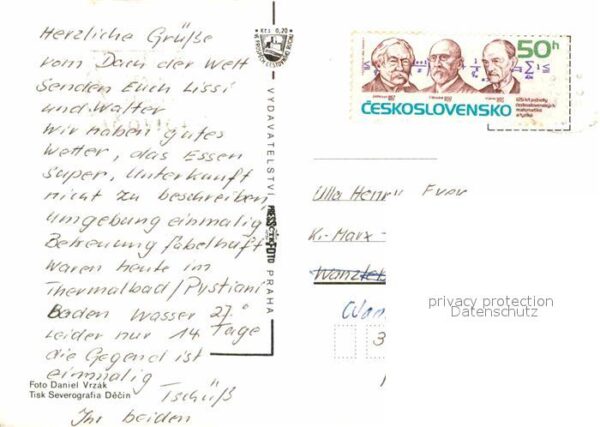 Herzliche Grüße
vom Dach der Welt
Senden Euch Lissi
und Walter
Wir haben gutes
Wetter, das Essen
Super, Unterkunft
nicht zu beschreiben,
umgebung einmalig
Betreuung fabelhaft
waren heute im
Thermalbad/Pystiani
Baden Wasser 27°
leider nur 14 Tage
die Gegend ist
einmalig
Tschüß
Ihr beiden
Foto Daniel Vrzák
Tisk Severografia Děčín
Kčs 0,20
VYDAVATELSTVÍ
PRESSFOTO
PRAHA
50h
ČESKOSLOVENSKO
125 let jednoty
československých
matematiků
a fyziků
Ulla Henry
K.-Marx-
privacy protection
Datenschutz
3